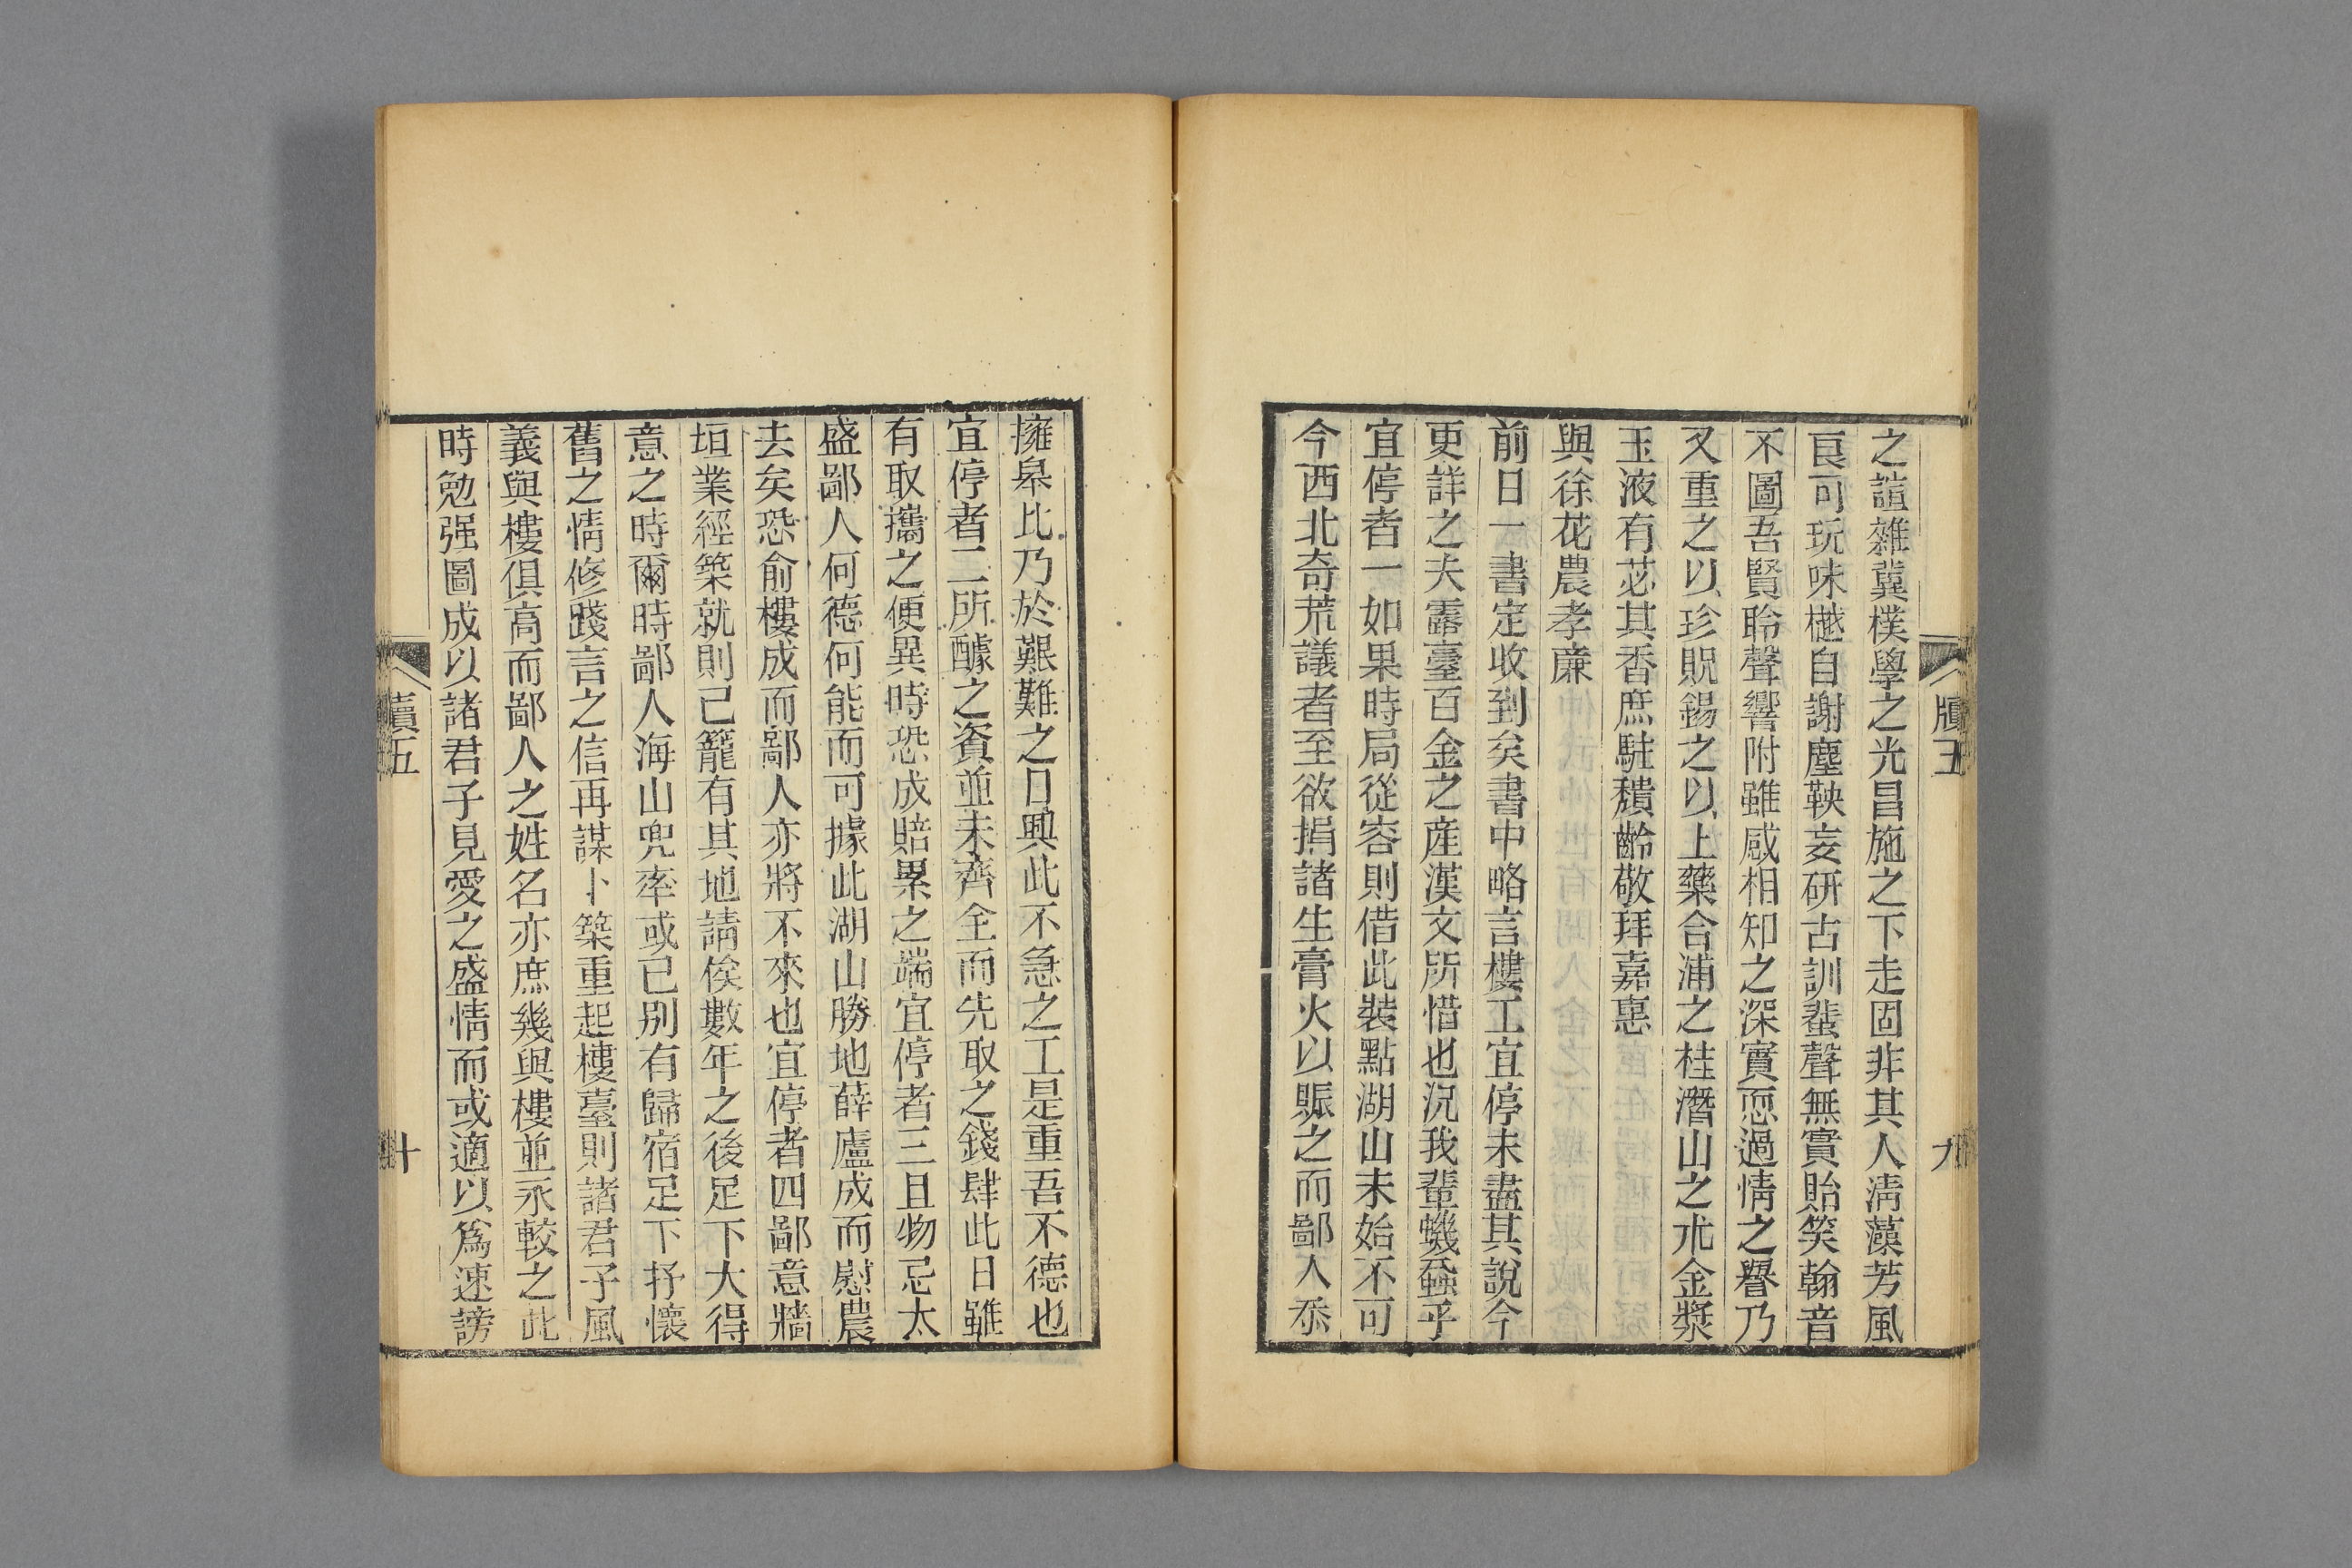 之諠雜冀樸學之光昌施之下走固非其人清藻芳風
良可玩味樾自謝塵鞅妄研古訓蜚聲無實貽笑翰音
不圖吾賢聆聲響附雖感相知之深實恧過情之譽乃
又重之以珍貺錫之以上藥合浦之桂潛山之朮金漿
玉液有苾其香庶駐穨齡敬拜嘉惠
與徐花農孝廉
前日一書定收到矣書中略言樓工宜停未盡其說今
更詳之夫露臺百金之產漢文所惜也況我輩蟣蝨乎
宜停者一如果時局從容則借此裝點湖山未始不可
今西北奇荒議者至欲捐諸生膏火以賑之而鄙人忝
牘五
九
擁皋比乃於艱難之日興此不急之工是重吾不德也
宜停者二所醵之資並未齊全而先取之錢肆此日雖
有取攜之便異時恐成賠累之端宜停者三且物忌太
盛鄙人何德何能而可據此湖山勝地薛廬成而慰農
去矣恐俞樓成而鄙人亦將不來也宜停者四鄙意牆
垣業經築就則已籠有其地請俟數年之後足下大得
意之時爾時鄙人海山兜率或已別有歸宿足下抒懷
舊之情修踐言之信再謀卜築重起樓臺則諸君子風
義與樓俱高而鄙人之姓名亦庶幾與樓並永較之此
時勉强圖成以諸君子見愛之盛情而或適以爲速謗
牘五
十